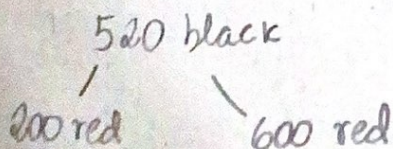 520 black
200 red
600 red